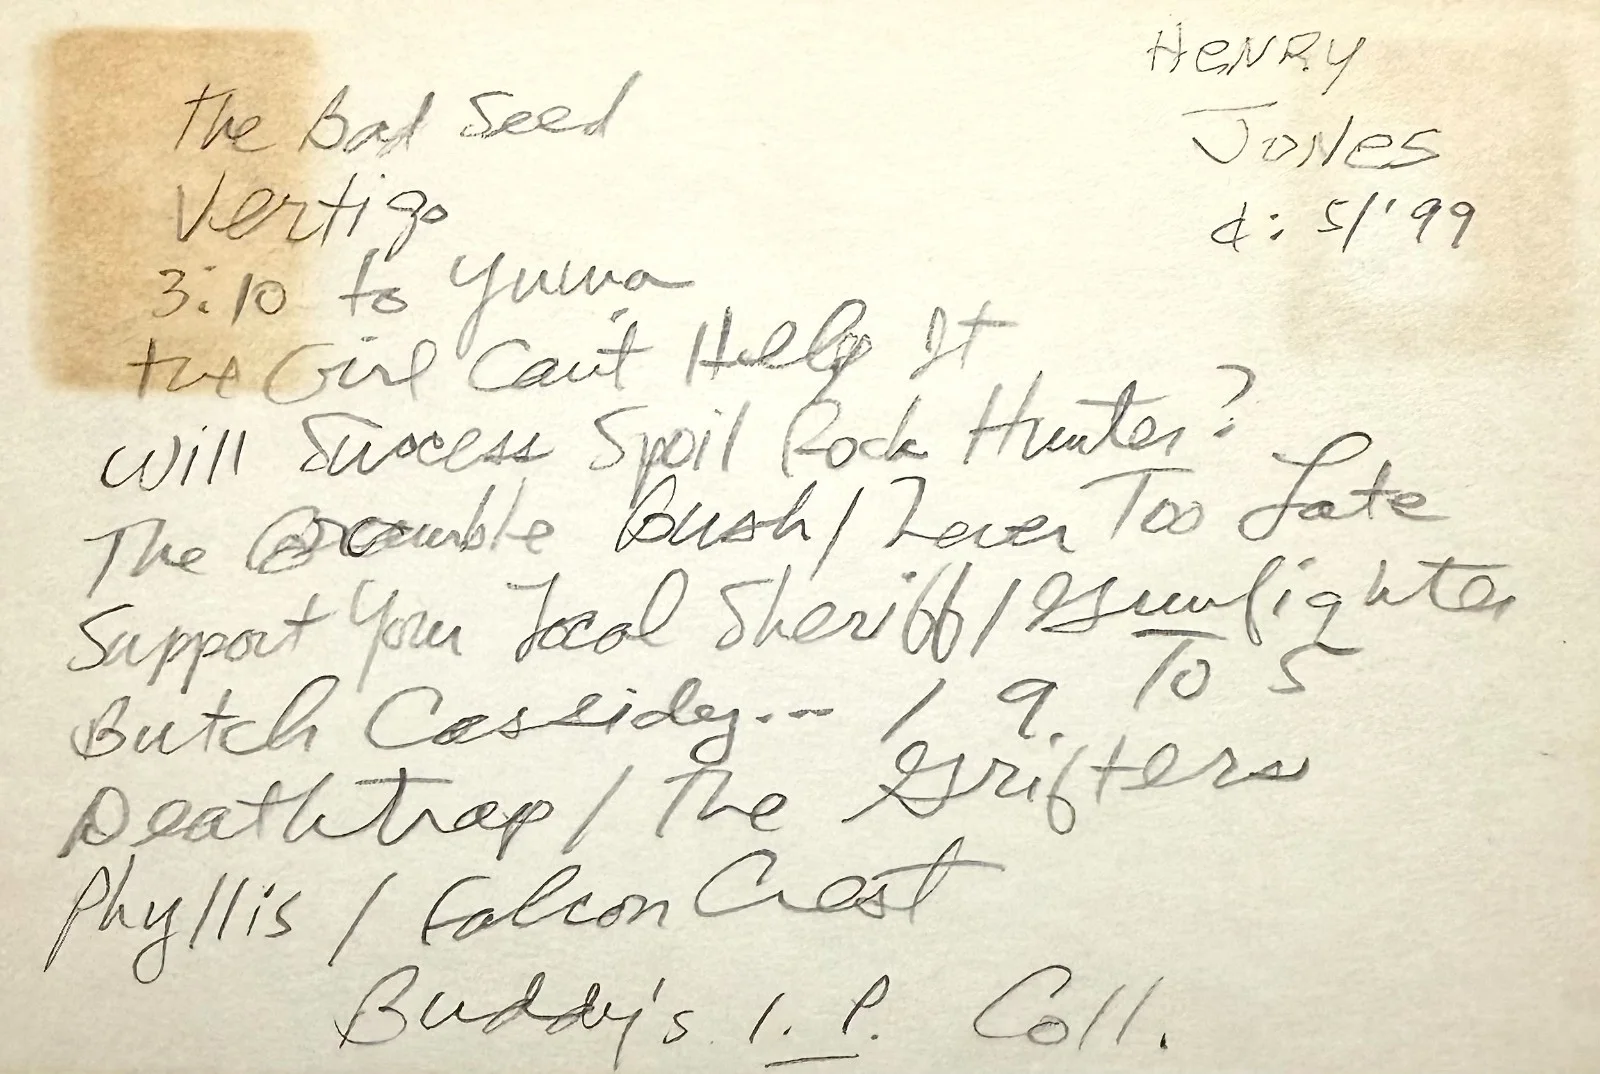 HENRY
JONES
d: 5/'99
The Bad Seed
Vertigo
3:10 to Yuma
the Girl Can't Help It
Will Success Spoil Rock Hunter?
The Bramble Bush / Never Too Late
Support Your Local Sheriff / Gunfighter
Butch Cassidy... / 9 To 5
Deathtrap / The Grifters
Phyllis / Falcon Crest
Buddy's I.P. Coll.